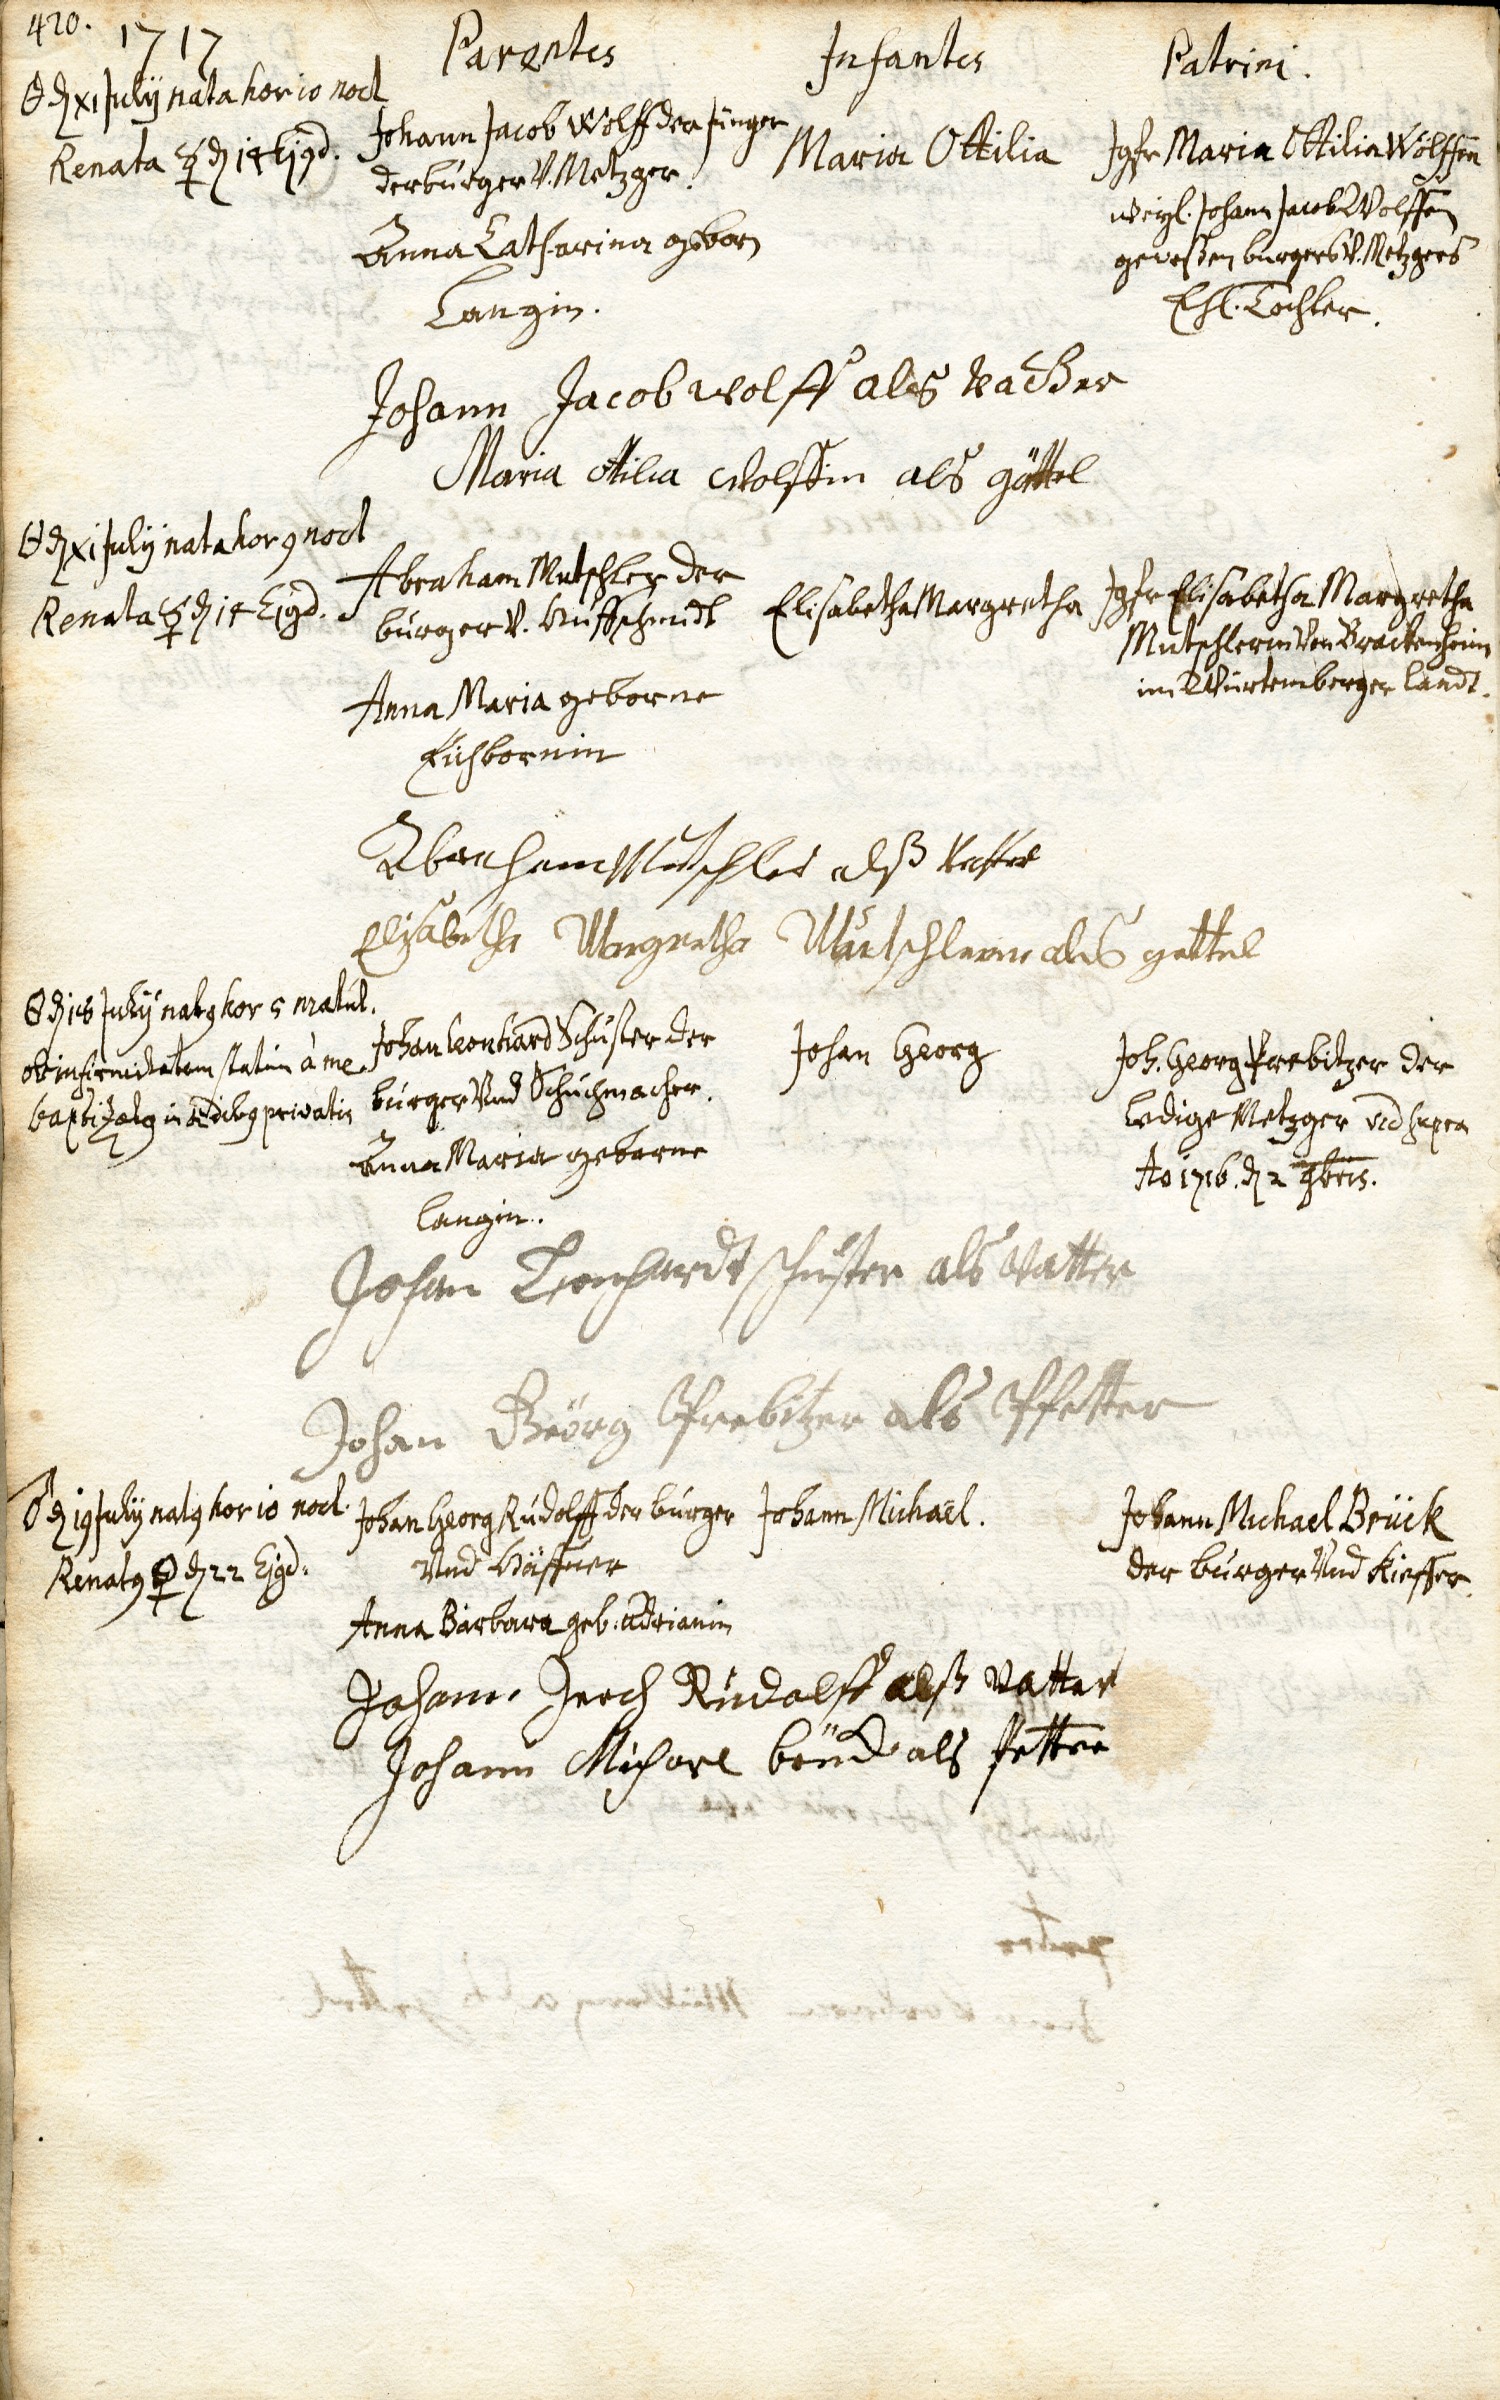 420.
1717
Parentes
Infantes
Patrini.
☉ d xi July nata hor 10 noct
Renata ☿ d 14 Ejqd.
Johann Jacob Wolff der Jünger
der burger V. Metzger.
Anna Catharina geborn
Langin.
Maria Ottilia
Jgfr Maria Ottilia Wolffin
weyl. Johann Jacob Wolffen
geweßen burgers V. Metzgers
Ehl. Tochter.
Johann Jacob Wolff als Vatter
Maria Otilia Wolffin als göttel
☉ d xi July nata hor 9 noct
Renata ☿ d 14 Ejqd.
Abraham Mutschler der
burger V. Huffschmidt
Anna Maria geborne
Eichbornin
Elisabetha Margretha
Jgfr Elisabetha Margretha
Mutschlerin Von Brackenheim
im Würtemberger landt.
Abraham Mutschler alß Vatter
Elisabetha Margretha Mutschlerin als gettel
d 18 July nat9 hor 5 matut.
ob infirmitatem statim à me
baptizat9 in ædib9 privatis
Johan Leonhard Schuster der
burger Und Schuchmacher.
Anna Maria geborne
Langin.
Johan Georg
Joh. Georg Prebitzer der
Ledige Metzger vid supra
Ao 1716. d 2 9bris.
Johan Leonhardt schuster als Vatter
Johan Geörg Prebitzer als Pfetter
d 19 July nat9 hor 10 noct.
Renat9 d 22 Ejqd.
Johan Georg Rudolff der burger
Und Häffner
Anna Barbara geb. Adrianin
Johann Michaël.
Johann Michael Brück
der burger Und Kieffer.
Johann Jerch Rudolff alß Vatter
Johann Michael brück als Petter